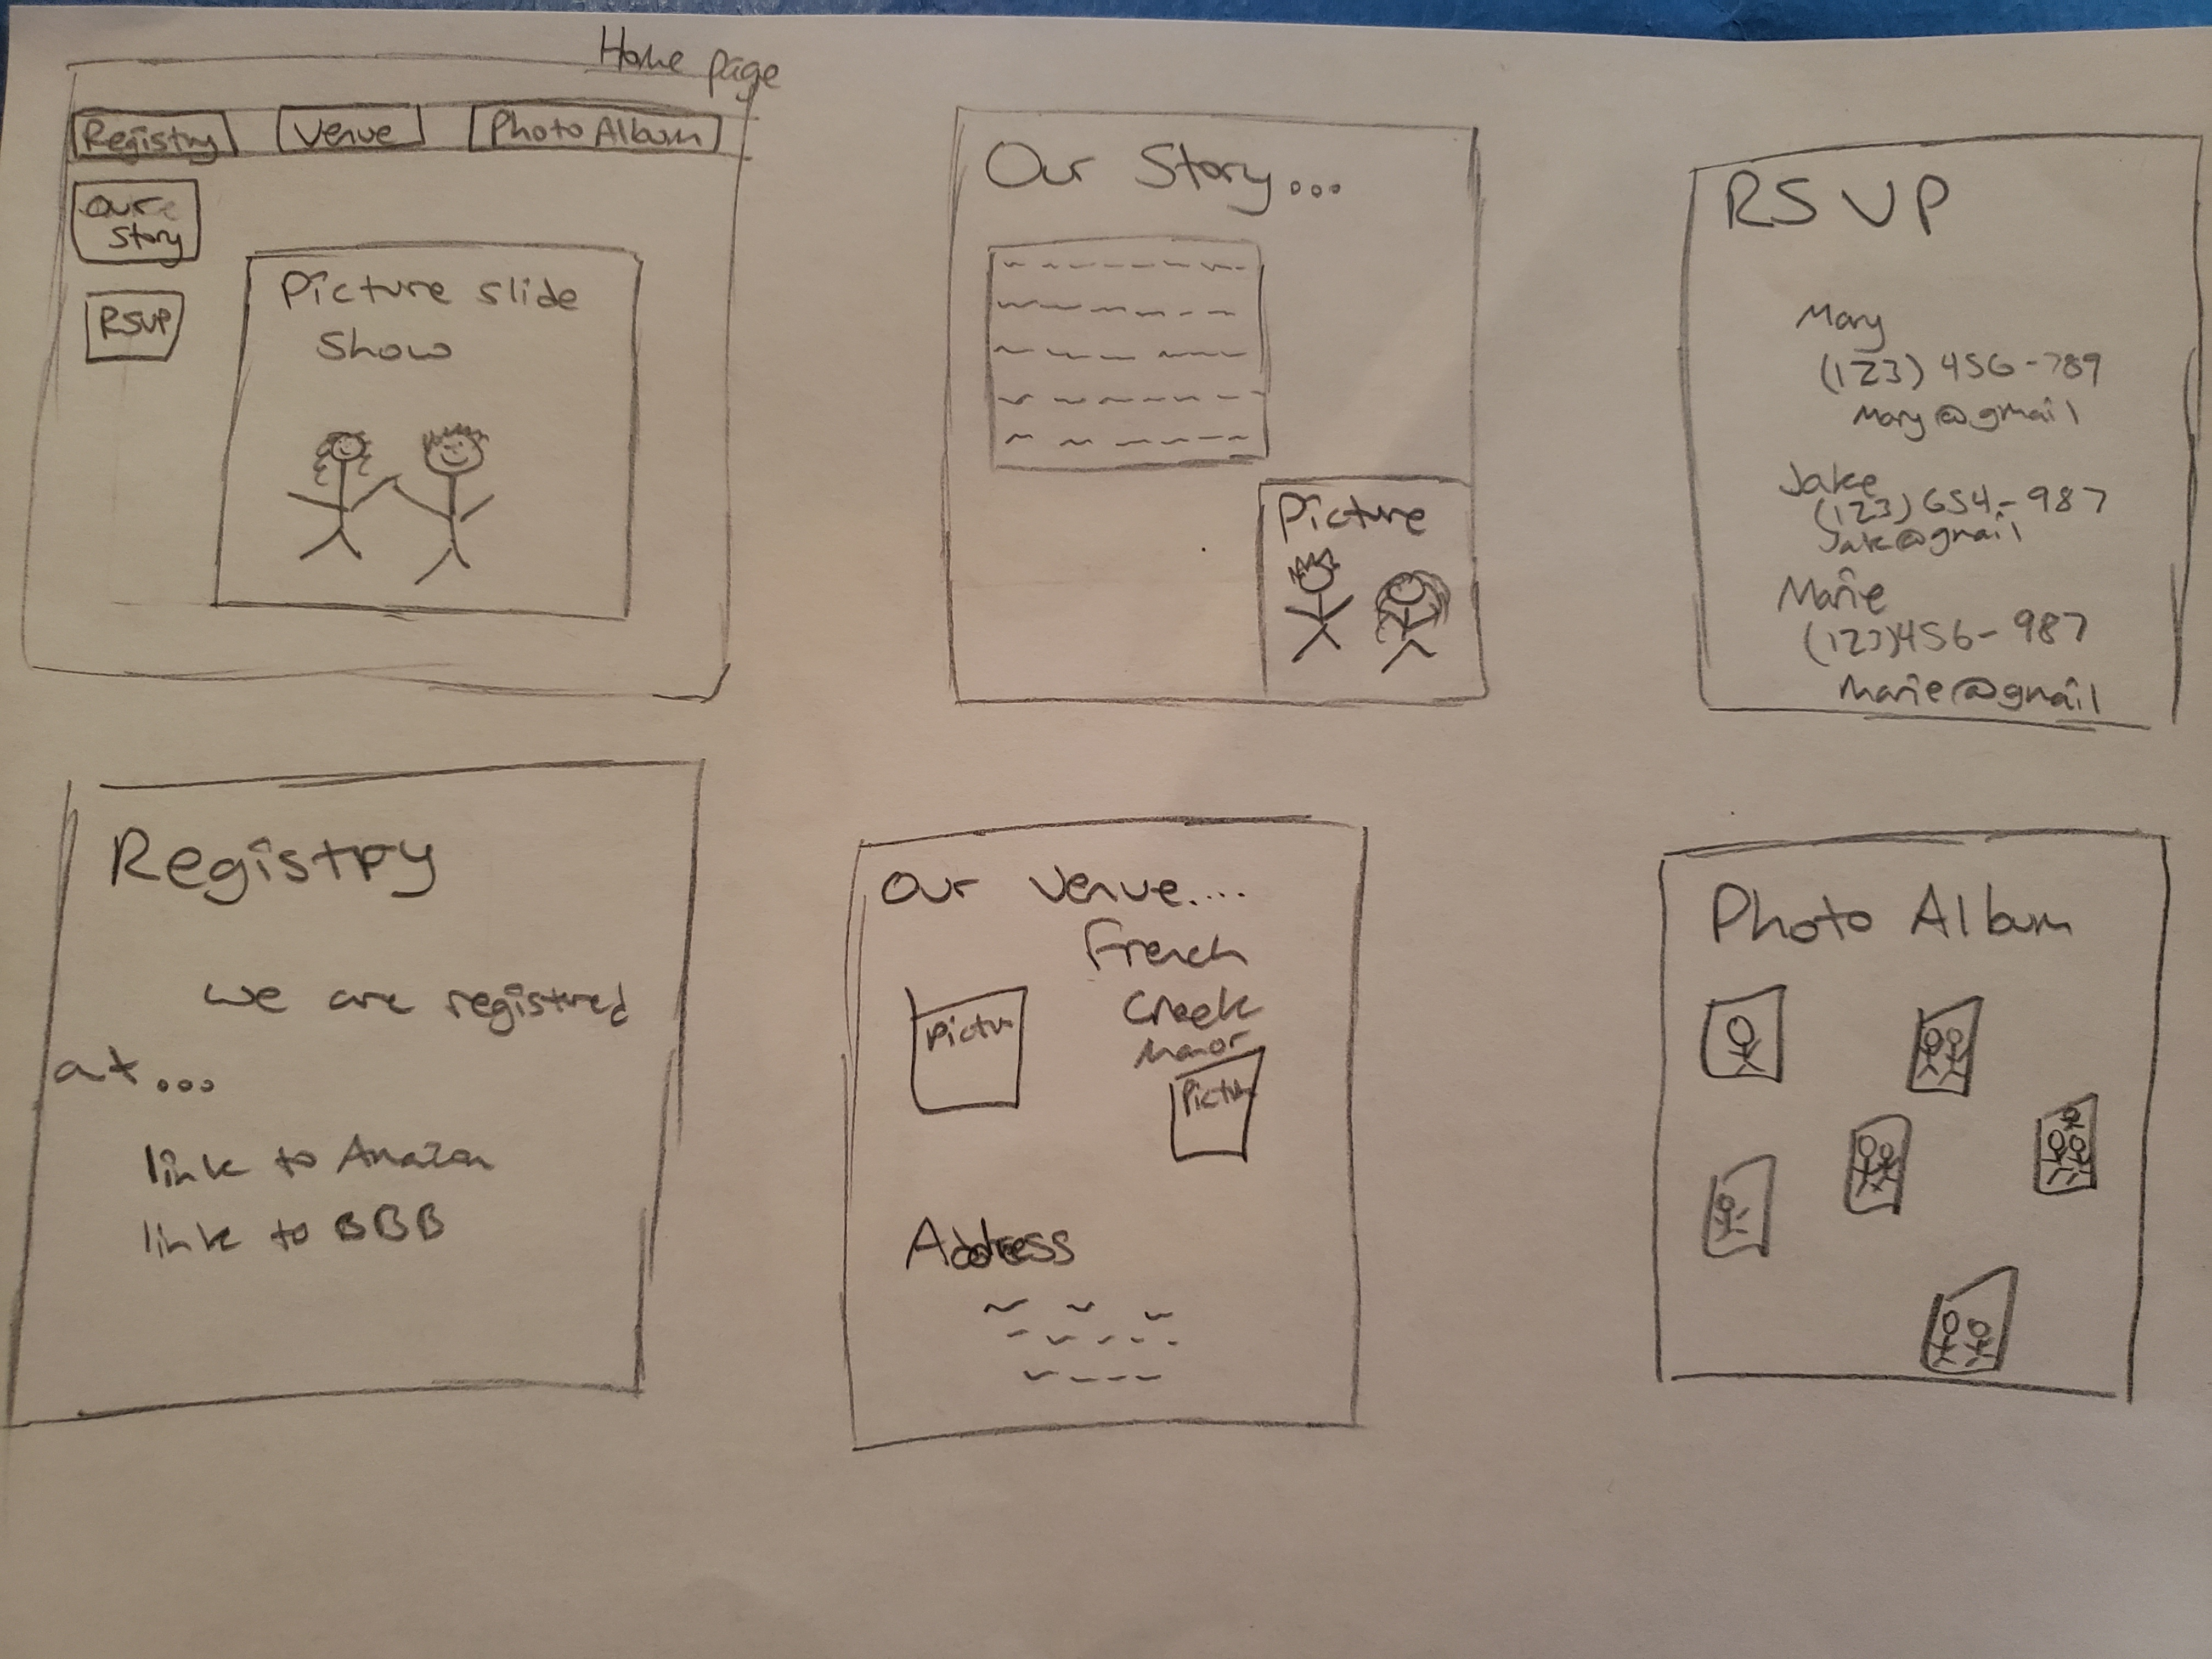 Home page
Registry Venue Photo Album
our
story
RSVP
Picture slide
show
Our Story...
Picture
RSVP
Mary
(123) 456-789
Mary@gmail
Jake
(123) 654-987
Jake@gmail
Marie
(123)456-987
Marie@gmail
Registry
we are registred
at...
link to Amazon
link to BBB
our venue....
French
Creek
Manor
Pictu
Pictu
Address
Photo Album